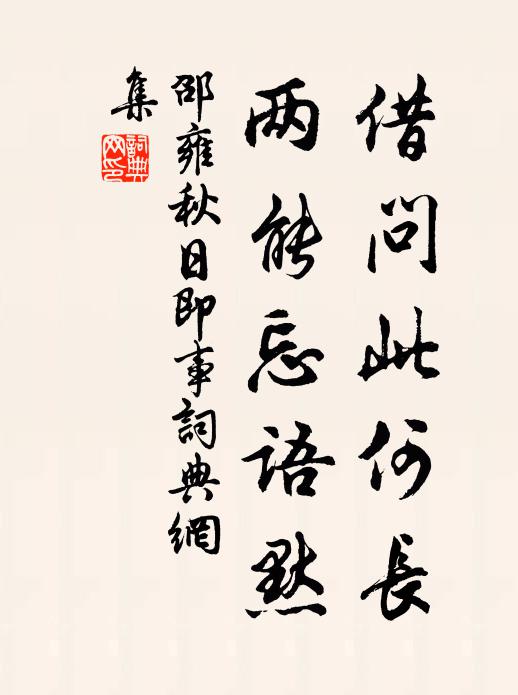 借问此何長
两能忘語默
邵雍秋日即事詞典網
集
詞典
网印